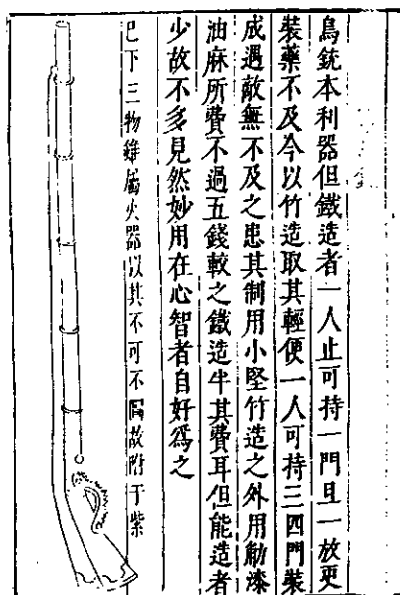 鳥銃本利器但鐵造者一人止可持一門且一放更
裝藥不及今以竹造取其輕便一人可持三四門裝
成遇敵無不及之患其制用小堅竹造之外用觔漆
油麻所費不過五錢較之鐵造半其費耳但能造者
少故不多見然妙用在心智者自好爲之
已下三物雖屬火器以其不可不備故附于紫